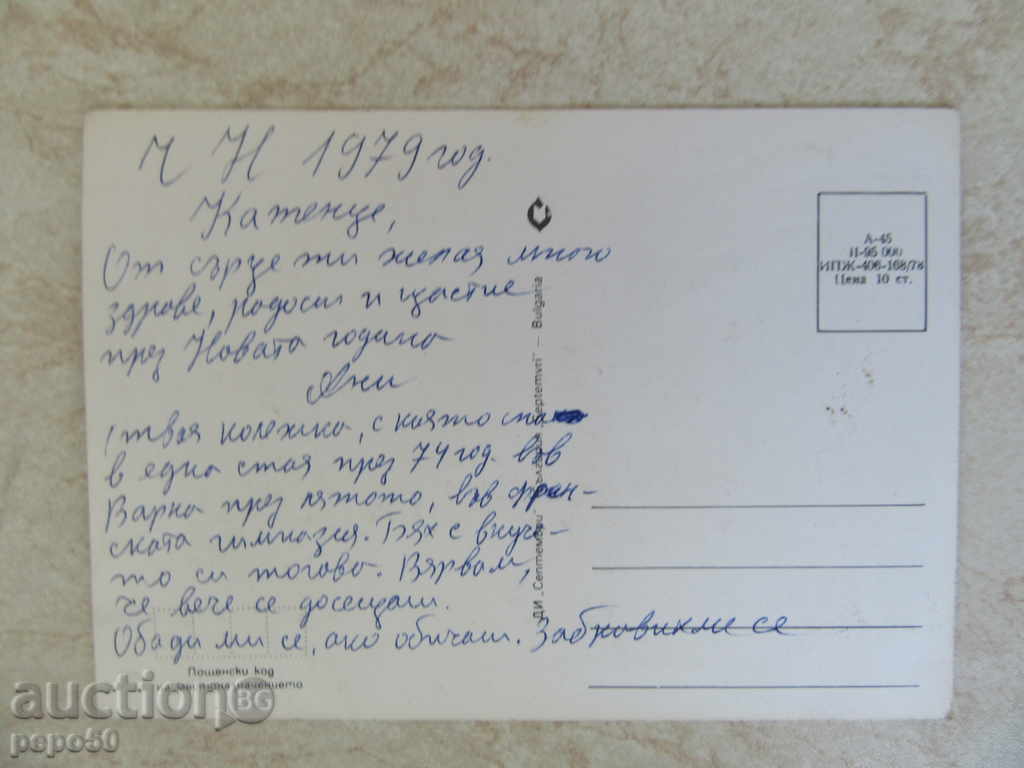 Ч Н 1979 год.
Катенце,
От сърце ти желая много
здраве, радост и щастие
през Новата година
Ани
(твоя колежка, с която спах
в една стая през 74 год. във
Варна през лятото, във френ-
ската гимназия. Бях с внуче-
то си тогава. Вярвам,
че вече се досещаш.
Обади ми се, ако обичаш. се
Пощенски код
ДИ „Септември" "Septemvri" — Bulgaria
А-45
П-95 000
ИПЖ-406-168/78
Цена 10 ст.
auction BG
pepo50